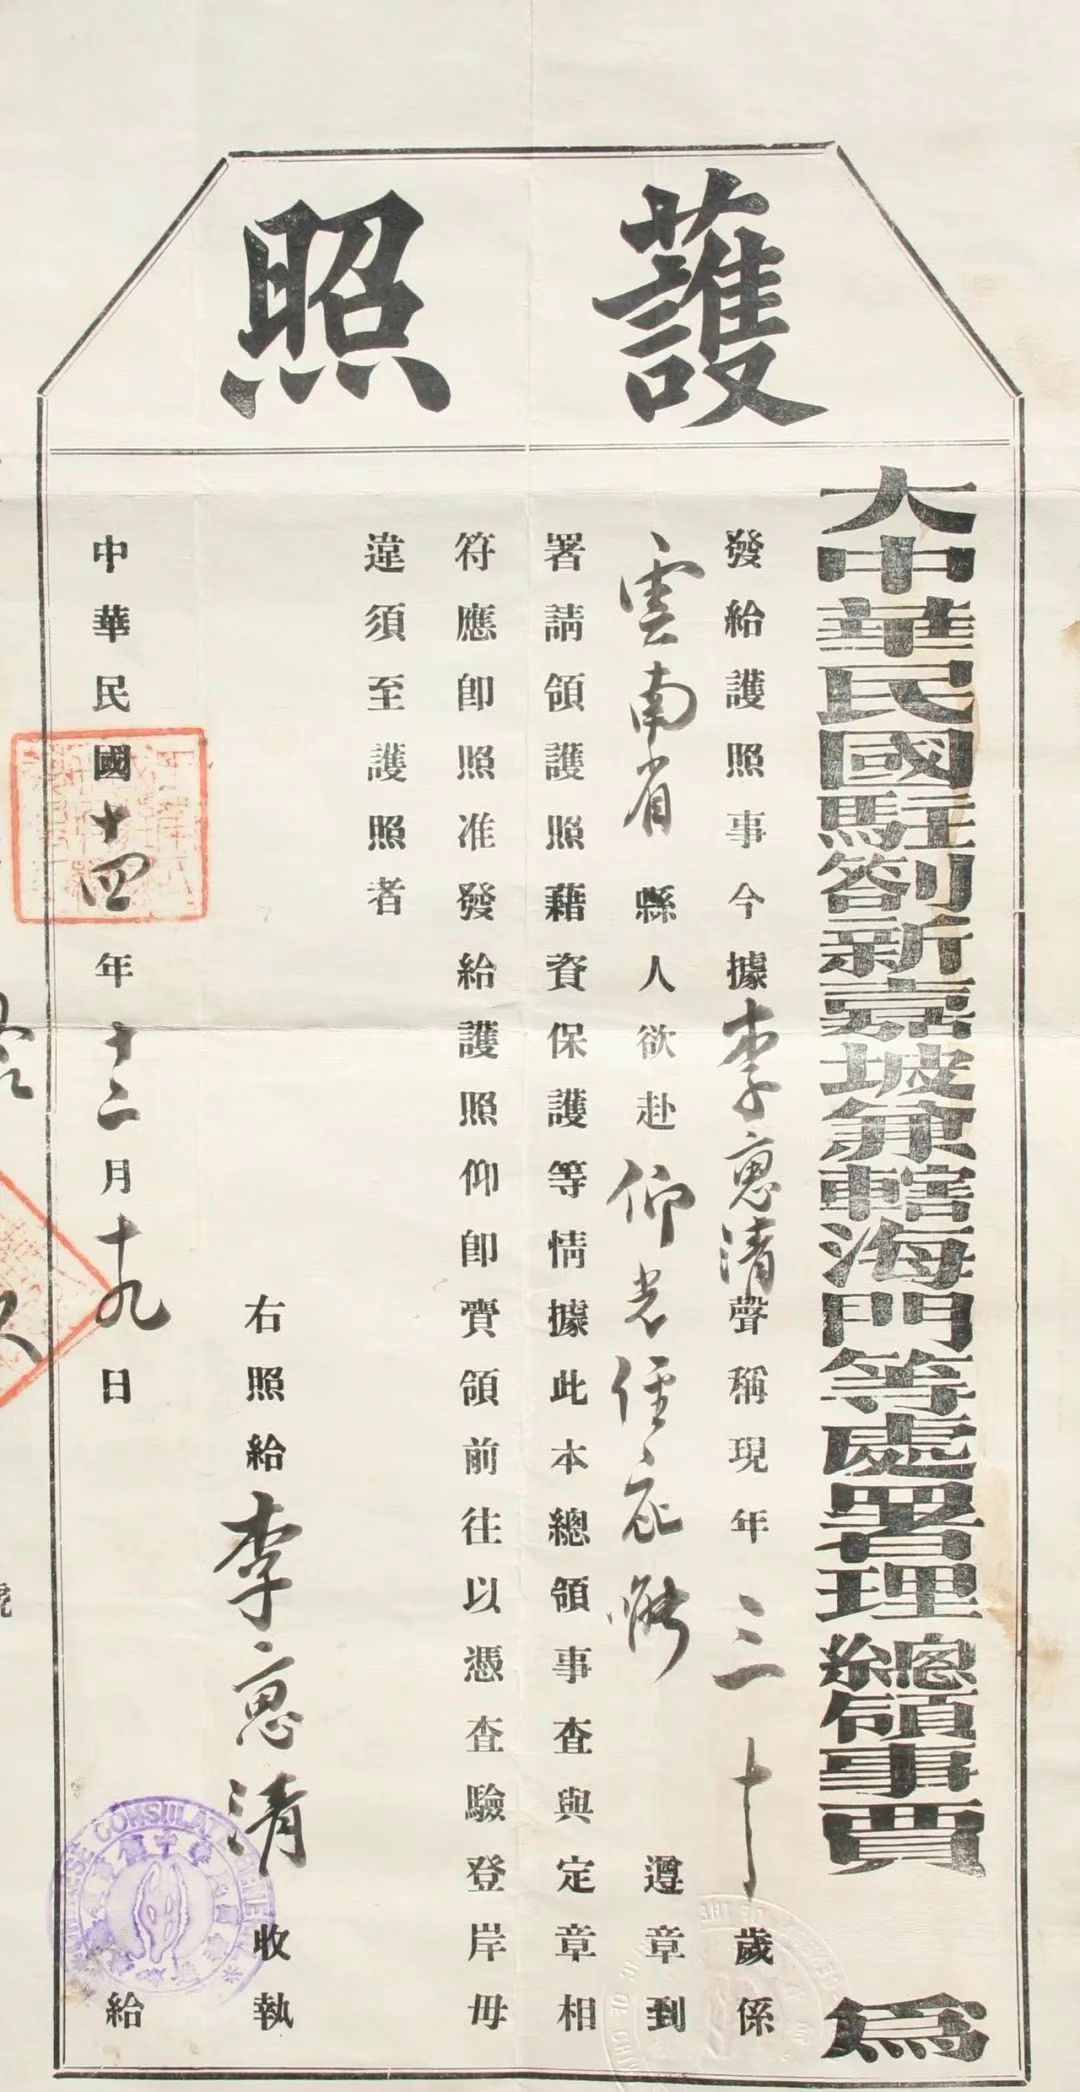 護照
大中華民國駐劄新嘉坡兼轄海門等處署理總領事賈 為
發給護照事今據李惠清聲稱現年三十歲係
雲南省 縣人欲赴仰光 遵章到
署請領護照藉資保護等情據此本總領事查與定章相
符應即照准發給護照仰即賫領前往以憑查驗登岸毋
違須至護照者
右照給李惠清收執
中華民國十四年十二月十九日 給
CHINESE CONSULATE GENERAL